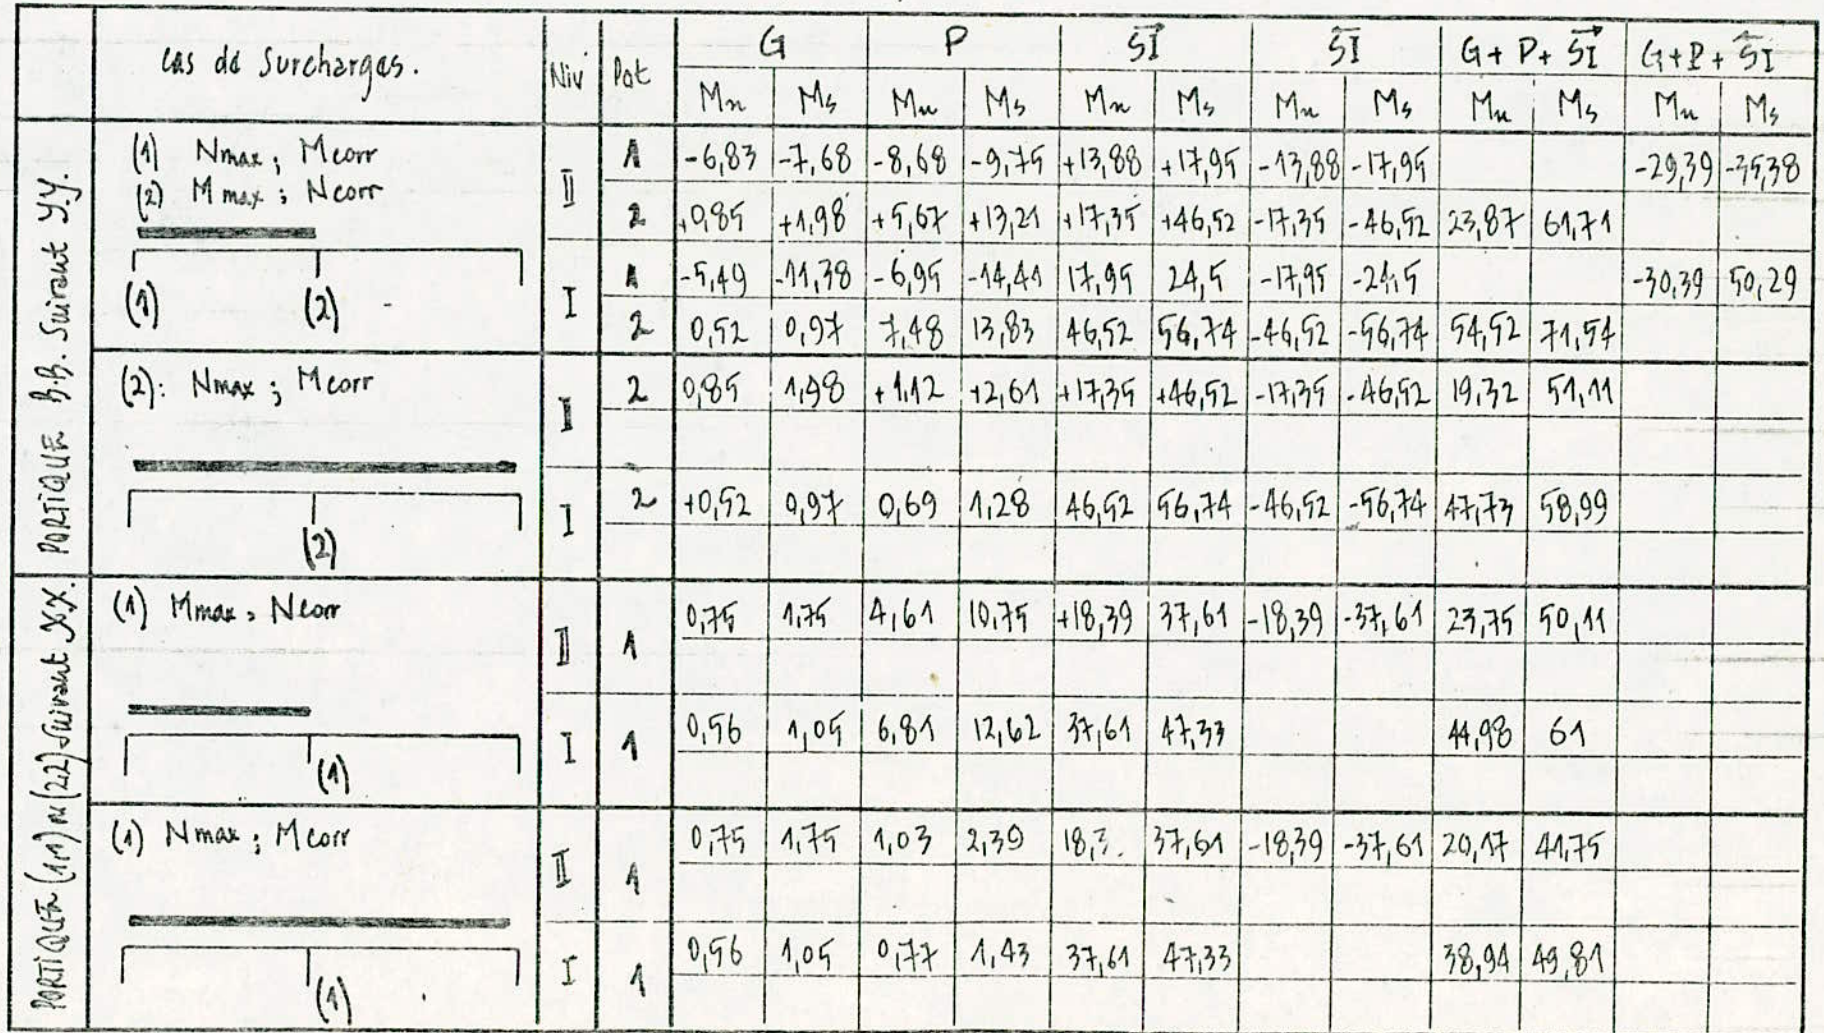 cas de Surcharges. Niv Pot G P SI SI G+ P+ SI G+P+ SI
Mn Ms Mn Ms Mn Ms Mn Ms Mn Ms Mn Ms
PORTIQUE B.B. Suivant y.y.
(1) Nmax ; Mcorr
(2) M max ; Ncorr
(1) (2)
II 1 -6,83 -7,68 -8,68 -9,75 +13,88 +17,95 -13,88 -17,95 -29,39 -35,38
2 +0,85 +1,98 +5,67 +13,21 +17,35 +46,52 -17,35 -46,52 23,87 61,71
I 1 -5,49 -11,38 -6,95 -14,41 17,95 24,5 -17,95 -24,5 -30,39 50,29
2 0,52 0,97 7,48 13,83 46,52 56,74 -46,52 -56,74 54,52 71,54
(2): Nmax ; Mcorr
(2)
II 2 0,85 1,98 +1,12 +2,61 +17,35 +46,52 -17,35 -46,52 19,32 51,11
I 2 +0,52 0,97 0,69 1,28 46,52 56,74 -46,52 -56,74 47,73 58,99
PORTIQUE (11) (22) Suivant X.X.
(1) Mmax , Ncorr
(1)
II 1 0,75 1,75 4,61 10,75 +18,39 37,61 -18,39 -37,61 23,75 50,11
I 1 0,56 1,05 6,81 12,62 37,61 47,33 44,98 61
(1) Nmax ; Mcorr
(1)
II 1 0,75 1,75 1,03 2,39 18,3. 37,61 -18,39 -37,61 20,17 41,75
I 1 0,56 1,05 0,77 1,43 37,61 47,33 38,94 49,81